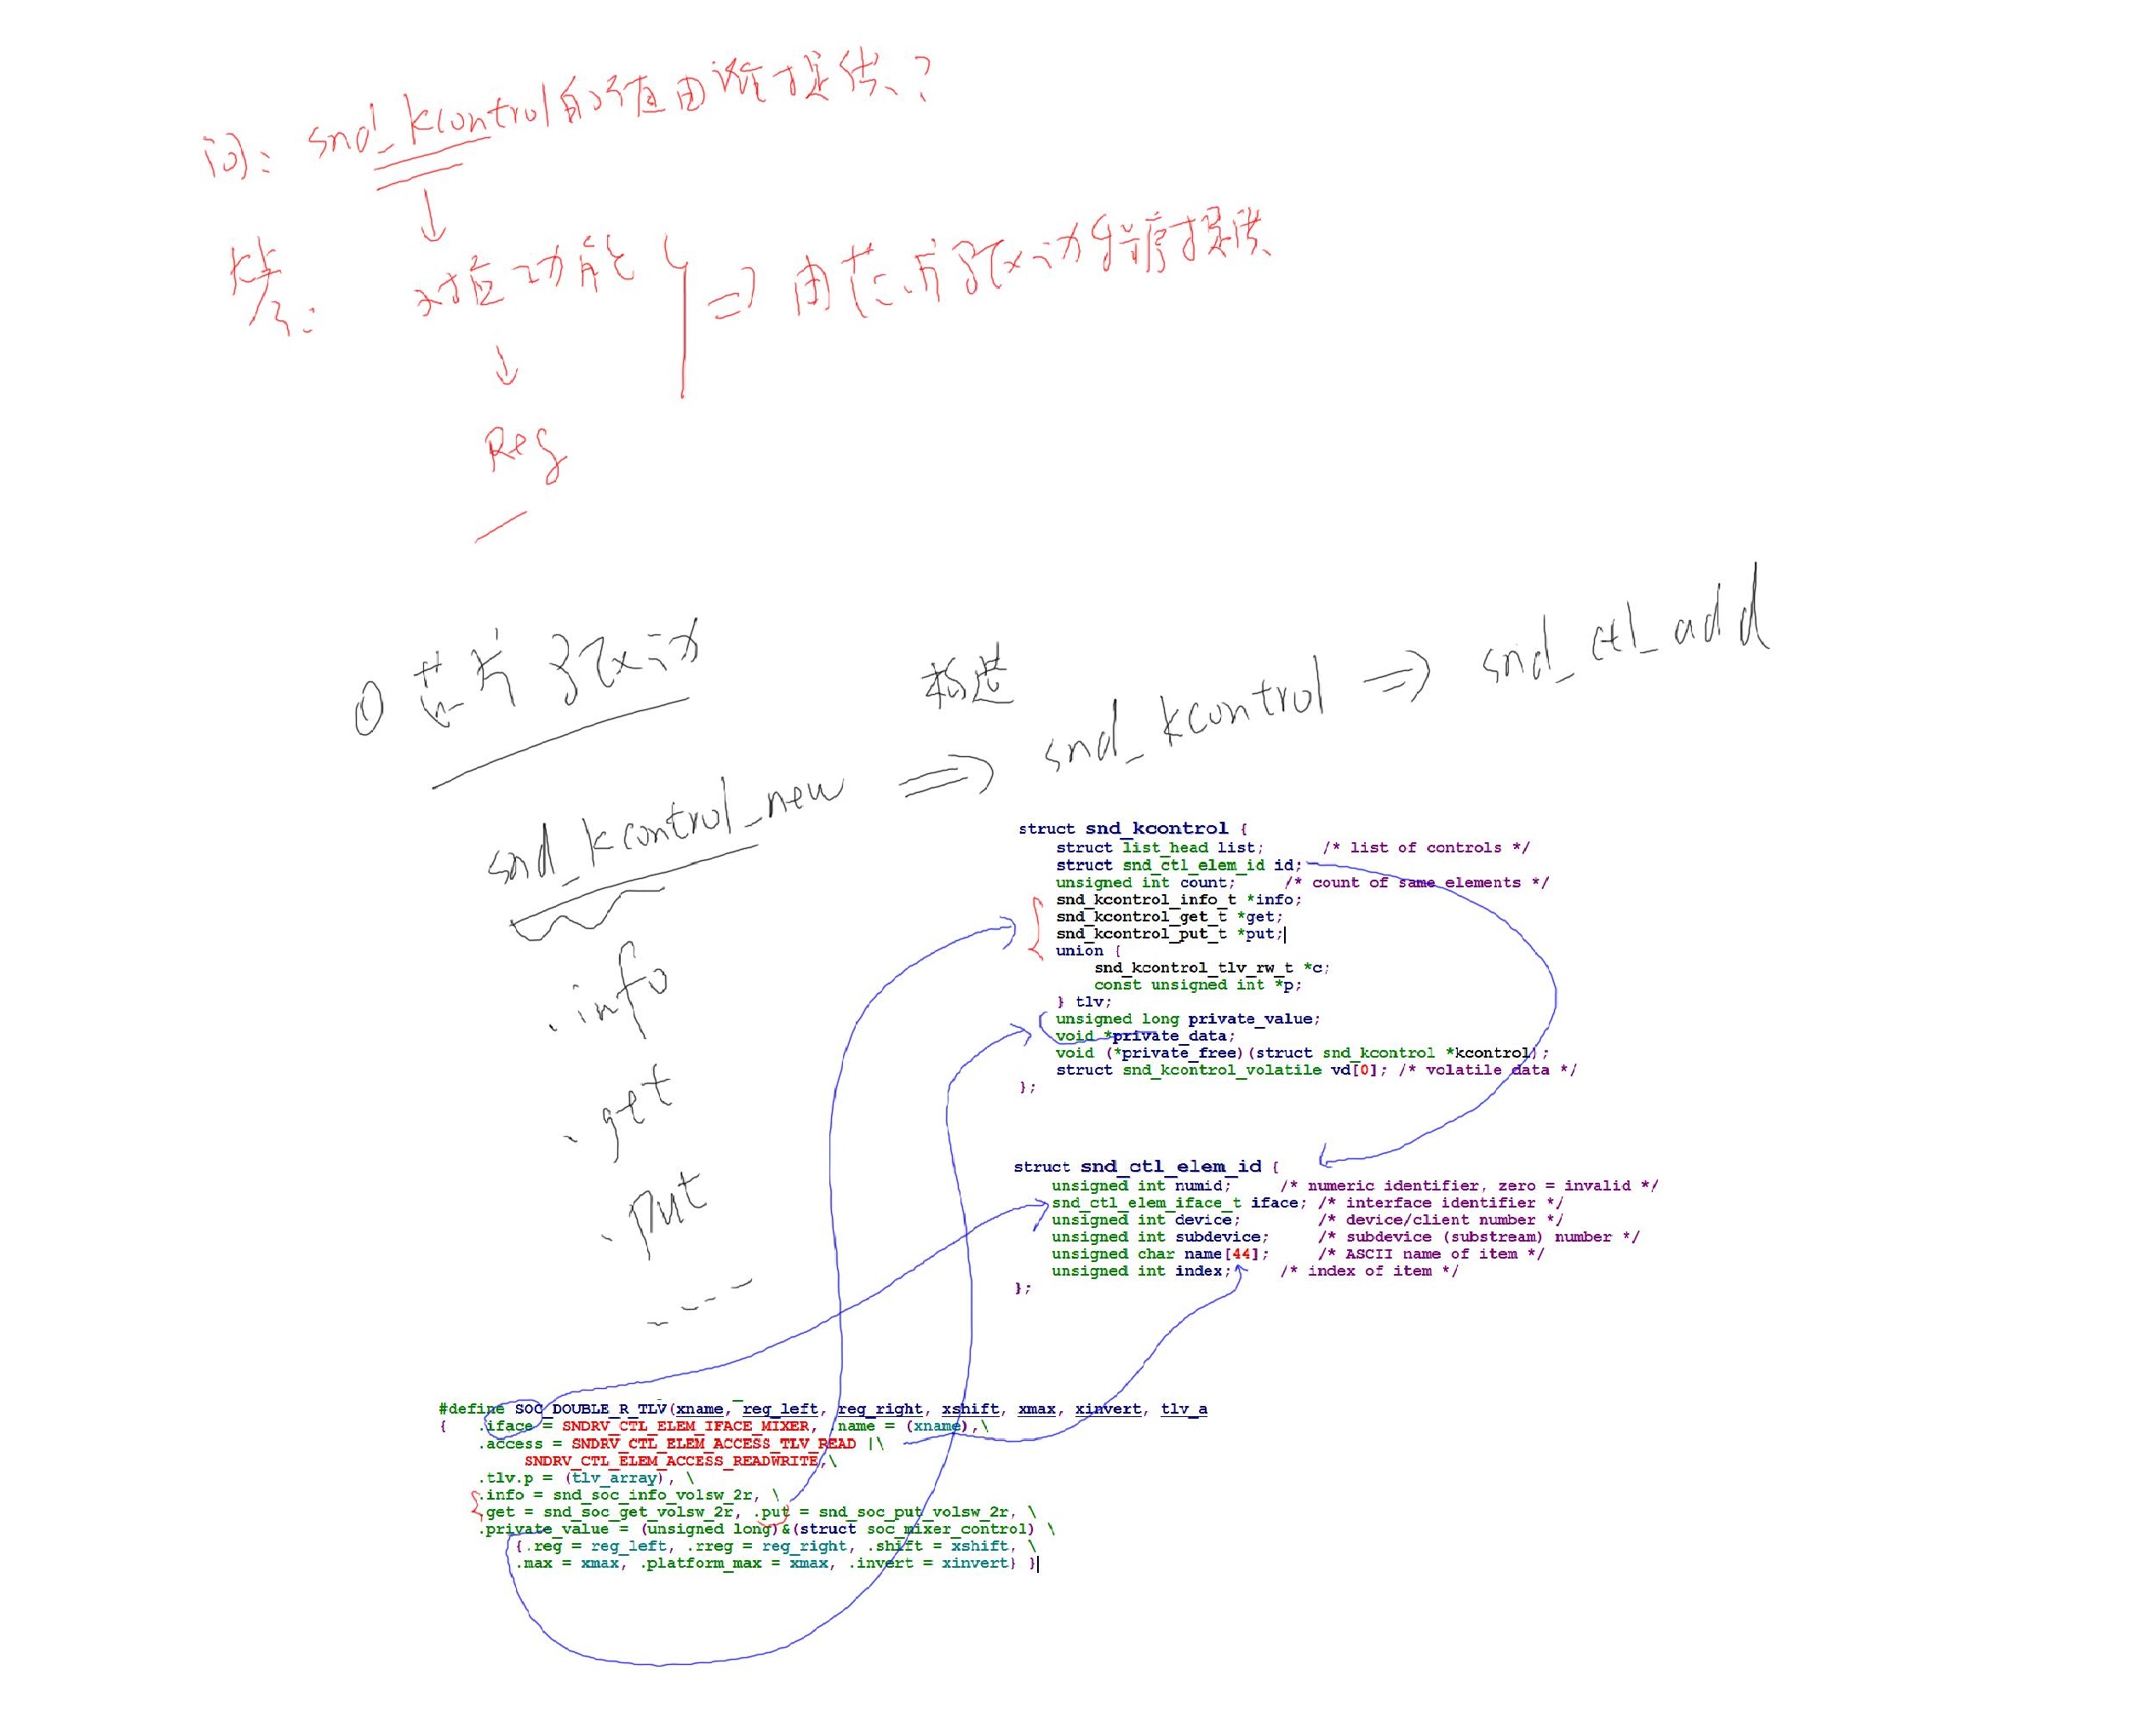 问: snd_kcontrol的值由谁提供?
答: 对应功能 => 由芯片驱动程序提供
Reg
① 芯片驱动
构造
snd_kcontrol_new => snd_kcontrol => snd_ctl_add
.info
.get
.put
----
struct snd_kcontrol {
struct list_head list; /* list of controls */
struct snd_ctl_elem_id id;
unsigned int count; /* count of same elements */
snd_kcontrol_info_t *info;
snd_kcontrol_get_t *get;
snd_kcontrol_put_t *put;
union {
snd_kcontrol_tlv_rw_t *c;
const unsigned int *p;
} tlv;
unsigned long private_value;
void *private_data;
void (*private_free)(struct snd_kcontrol *kcontrol);
struct snd_kcontrol_volatile vd[0]; /* volatile data */
};
struct snd_ctl_elem_id {
unsigned int numid; /* numeric identifier, zero = invalid */
snd_ctl_elem_iface_t iface; /* interface identifier */
unsigned int device; /* device/client number */
unsigned int subdevice; /* subdevice (substream) number */
unsigned char name[44]; /* ASCII name of item */
unsigned int index; /* index of item */
};
#define SOC_DOUBLE_R_TLV(xname, reg_left, reg_right, xshift, xmax, xinvert, tlv_a
{ .iface = SNDRV_CTL_ELEM_IFACE_MIXER, .name = (xname),\
.access = SNDRV_CTL_ELEM_ACCESS_TLV_READ |\
SNDRV_CTL_ELEM_ACCESS_READWRITE,\
.tlv.p = (tlv_array), \
.info = snd_soc_info_volsw_2r, \
.get = snd_soc_get_volsw_2r, .put = snd_soc_put_volsw_2r, \
.private_value = (unsigned long)&(struct soc_mixer_control) \
{.reg = reg_left, .rreg = reg_right, .shift = xshift, \
.max = xmax, .platform_max = xmax, .invert = xinvert} }